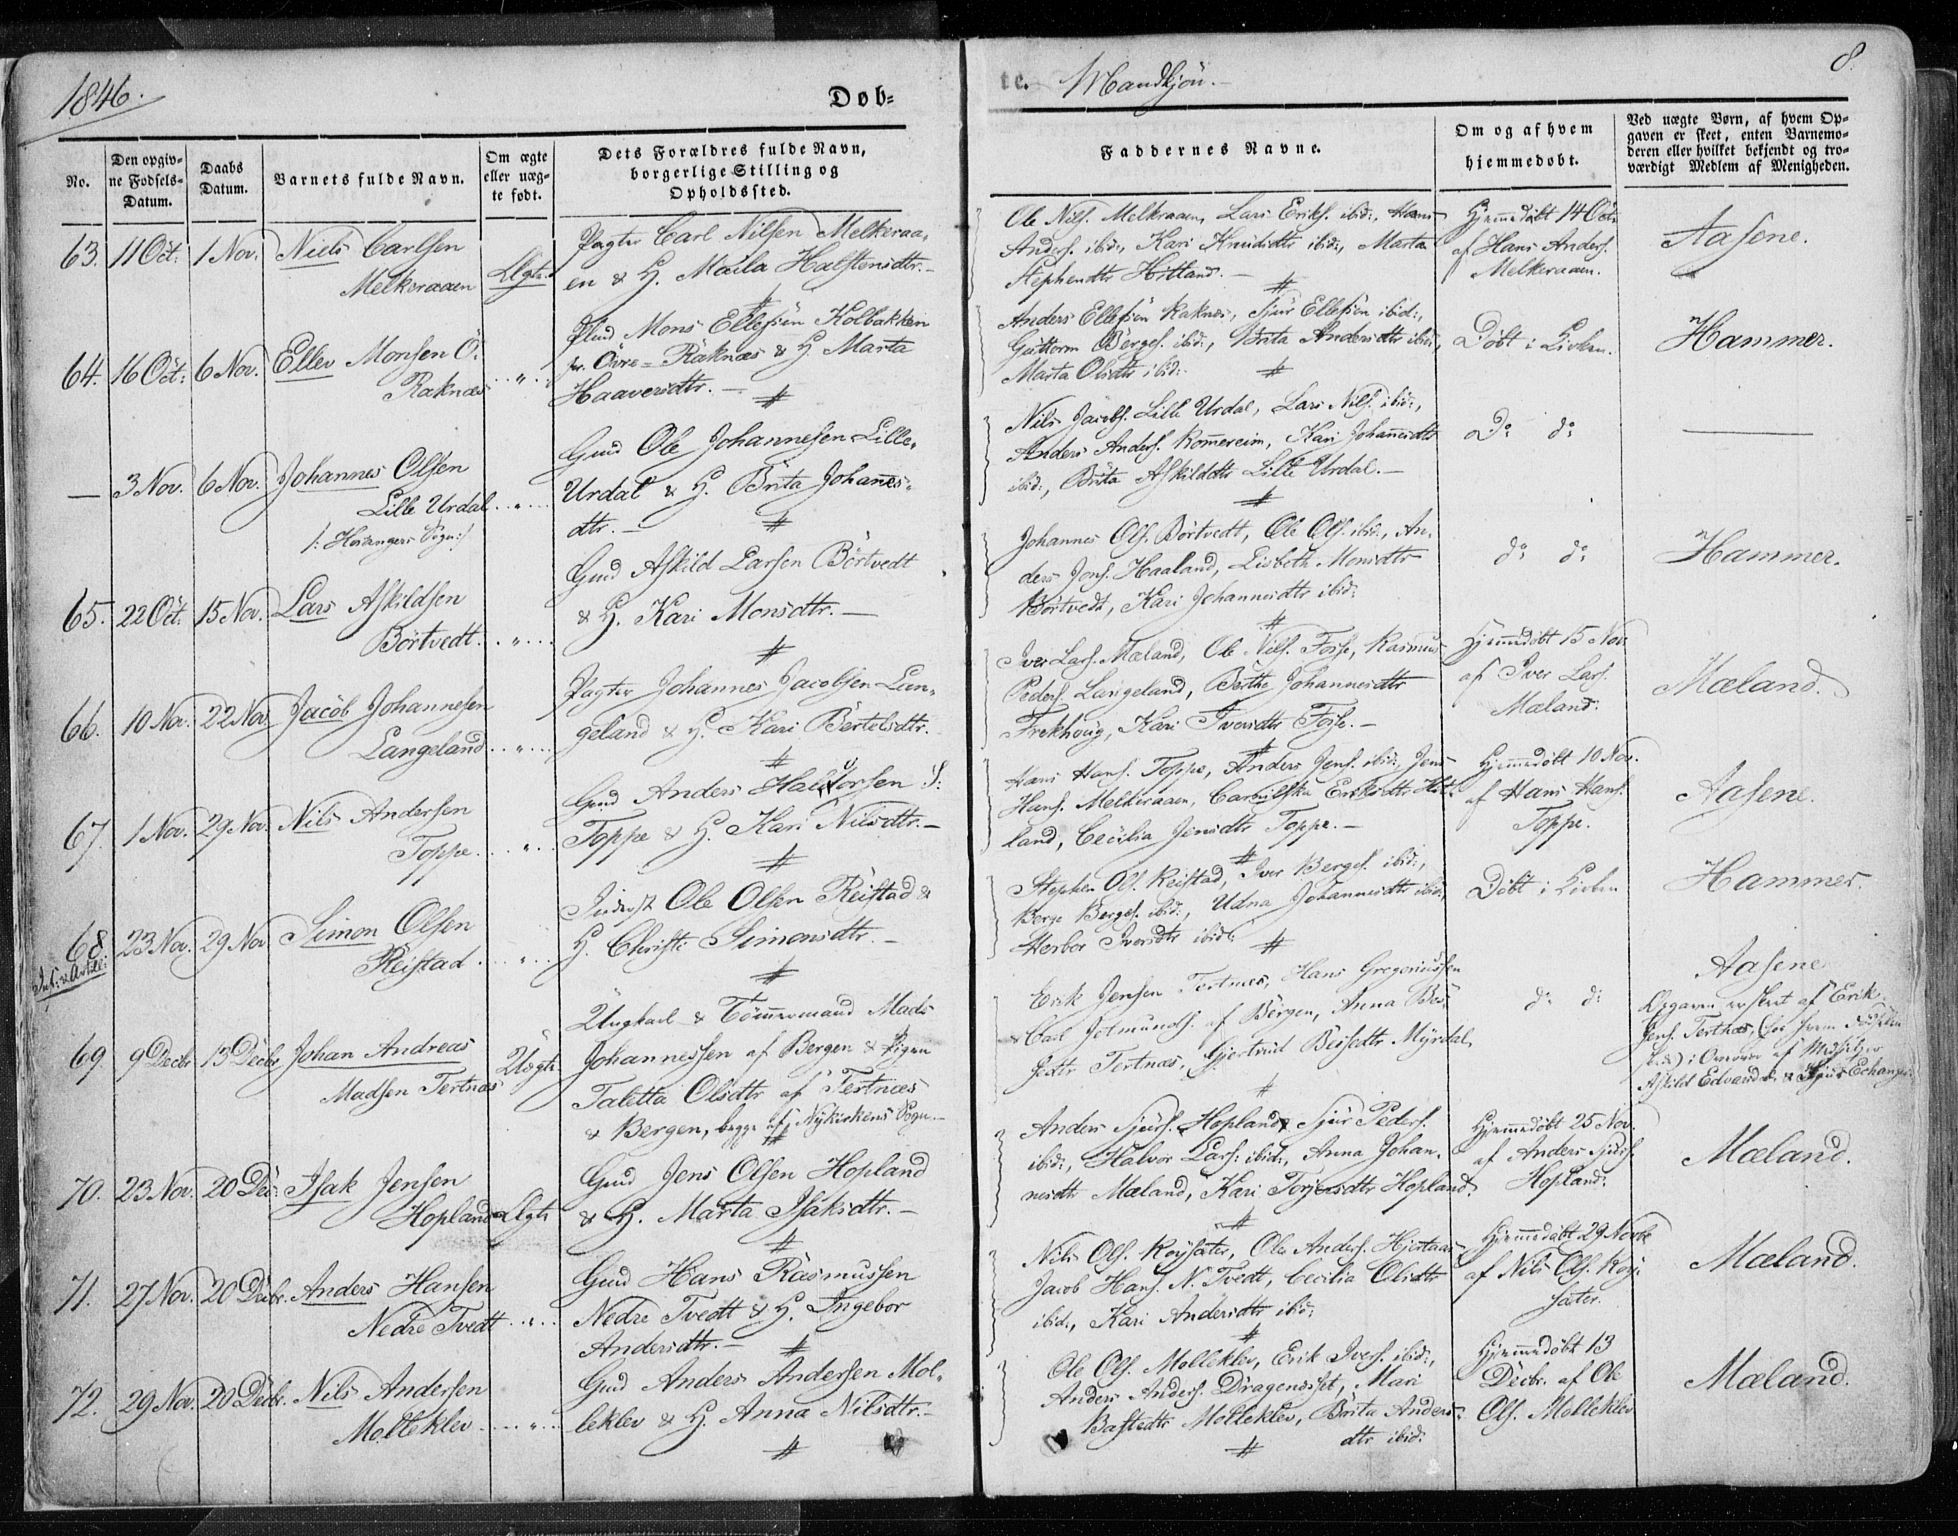 1846.
Døb=
te. Mandkjön.
8.
No.
Den opgiv-
ne Fødsels-
Datum.
Daabs
Datum.
Barnets fulde Navn.
Om ægte
eller uæg-
te født.
Dets Forældres fulde Navn,
borgerlige Stilling og
Opholdssted.
Faddernes Navne.
Om og af hvem
hjemmedøbt.
Ved uægte Børn, af hvem Op-
gaven er skeet, enten Barnemo-
deren eller hvilket bekjendt og tro-
værdigt Medlem af Menigheden.
63. 11 Oct: 1 Nov. Niels Carlsen
Melkeraaen
Ægte
Pagter Carl Nilsen Melkeraa-
en & H. Maila Halstensdtr. -
Ole Nils. Melkraaen, Lars Eriks. ibid:, Hans
Anders. ibid:, Kari Knudsdtr ibid:, Marta
Stephensdtr Hitland. -
Hjemmedöbt 14 Oct.
af Hans Anders.
Melkeraaen.
Aasene.
64. 16 Oct: 6 Nov. Ellev Monsen Ö.
Raknæs
Mons Ellefsen Kolbakken
Övre-Raknæs & H. Marta
Haaversdtr. -
Anders Ellefsen Raknes, Sjur Ellefsen ibid:,
Guttorm Börges. ibid:, Brita Andersdtr ibid:,
Marta Olsdtr ibid:
Döbt i Kirken.
Hammer.
— 3 Nov. 6 Nov. Johannes Olsen
Lille Urdal
/: Hosangers Sogn:/
Gmd Ole Johannesen Lille-
Urdal & H. Brita Johannes-
dtr. -
Nils Jacobs. Lille Urdal, Lars Nils. ibid:,
Anders Anders. Romereim, Kari Johannesdtr
ibid:, Brita Askildsdtr Lille Urdal. -
Do do
65. 22 Oct. 15 Nov. Lars Askildsen
Börtvedt.
Gmd Askild Larsen Börtvedt
& H. Kari Monsdtr. -
Johannes Ols. Börtvedt, Ole Ols. ibid:, An-
ders Jons. Haaland, Lisbeth Monsdtr
Börtvedt, Kari Johannesdtr ibid:
do do
Hammer.
66. 10 Nov. 22 Nov. Jacob Johannesen
Langeland
Pagter Johannes Jacobsen Lan-
geland & H. Kari Bertelsdtr.
Iver Lars. Mæland, Ole Nils. Fosse, Rasmus
Peders. Langeland, Berthe Johannesdtr
Frekhoug, Kari Iversdtr Fosse. -
Hjemmedöbt 15 Nov.
af Iver Lars.
Mæland.
Mæland.
67. 1 Nov. 29 Nov. Nils Andersen
Toppe.
Gmd Anders Haldorsen
Toppe & H. Kari Nilsdtr. -
Hans Hans. Toppe, Anders Jens. ibid:, Jens
Hans. Melkeraaen, Eriksdtr Hit-
land, Cecilia Jensdtr Toppe. -
Hjemmedöbt 10 Nov.
af Hans Hans.
Toppe.
Aasene.
68. 23 Nov. 29 Nov. Simon Olsen
Reistad.
Inderst Ole Olsen Reistad &
H. Christi Simonsdtr. -
Stephen Ols. Reistad, Iver Berges. ibid:,
Berge Berges. ibid:, Udna Johannesdtr ibid:,
Herbor Iversdtr ibid:
Döbt i Kirken
Hammer.
69. 9 Decbr 13 Decbr Johan Andreas
Madsen Tertnæs
Uægte
Ungkarl & Tömmermand Mads
Johannessen af Bergen & Pigen
Taletta Olsdtr af Tertnæs
& Bergen, begge af Nykirkens Sogn. -
Erik Jensen Tertnes, Hans Gregoriussen
& Carl Jetmunds. af Bergen, Anna Bes-
sedtr Tertnæs, Gjertrud Bessedtr Myrdal,
do do
Aasene
Opgaven er skeet af Erik
Jens. Tertnæs,
Askild Edvards. & Sjur
70. 23 Nov. 20 Dec: Isak Jensen
Hopland
Ægte
Gmd Jens Olsen Hopland
& H. Marta Isaksdtr. -
Anders Sjurs. Hopland, Sjur Peders.
ibid:, Halvor Lars. ibid:, Anna Johan-
nesdtr Mæland, Kari Torjersdtr Hopland.
Hjemmedöbt 25 Nov.
af Anders Sjurs.
Hopland.
Mæland.
71. 27 Nov. 20 Decbr. Anders Hansen
Nedre Tvedt
Gmd Hans Rasmussen
Nedre Tvedt & H. Ingebor
Andersdtr. -
Nils Ols. Röysæter, Ole Anders. Hjertaas
Jacob Hans. N. Tvedt, Cecilia Olsdtr
ibid:, Kari Andersdtr ibid:
Hjemmedöbt 29 Novbr
af Nils Ols. Röy-
sæter.
Mæland.
72. 29 Nov. 20 Decbr. Nils Andersen
Molleklev
Gmd Anders Andersen Mol-
leklev & H. Anna Nilsdtr. -
Ole Ols. Molleklev, Erik Ivers. ibid:,
Anders Anders. Dragenesset, Mari
Bastedtr Molleklev, Brita Anders-
dtr ibid:
Hjemmedöbt 13
Decbr. af Ole
Ols. Molleklev
Mæland.